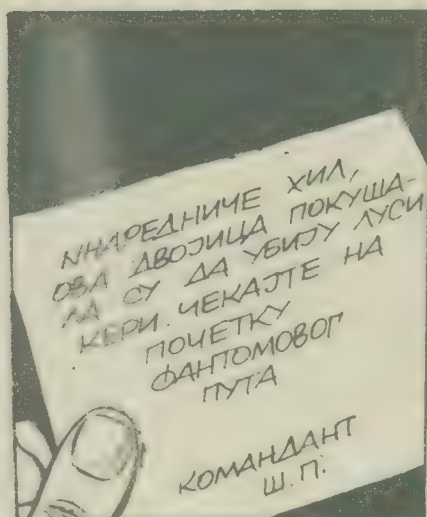 ННАРЕДНИЧЕ ХИЛ,
ОВА ДВОЈИЦА ПОКУША-
ЛА СУ ДА УБИЈУ ЛУСИ
КЕРИ. ЧЕКАЈТЕ НА
ПОЧЕТКУ
ФАНТОМОВОГ
ПУТА
КОМАНДАНТ
Ш.П.